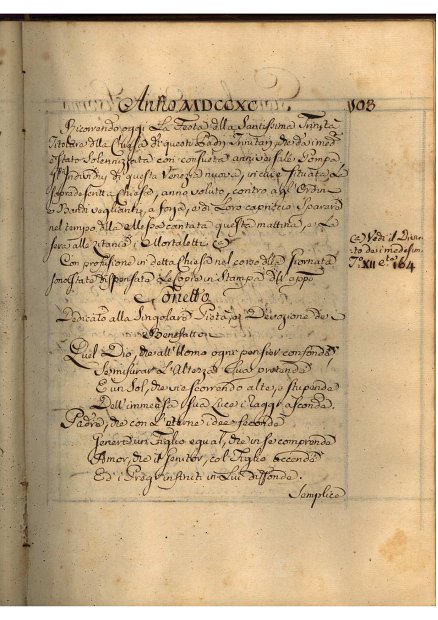 Anno MDCCXC
103
Ricorrendo oggi La Festa della Santissima Trinità
Titolare della Chiesa di questi Padri Trinitarj, che da i med.
è stato Solennizzata con consueta anniversale Pompa
Individuj di questa Venezia nuova, in cui è situata la
sopradescritta Chiesa, anno voluto, contro agl'Ordini
e Bandi veglianti, a forza, e di Loro capriccio sparare
nel tempo della Messa cantata questa mattina, e La
sera alle Litanie i Mortaletti (a
Con profusione in detta Chiesa nel corso della Giornata
sono state dispensate Le Copie in Stampa dell'appo
Sonetto
Dedicato alla Singolare Pietà, e Devozione de
Benefattori
Quel Dio, che all'Uomo ogni pensier confonde
Se misurar L'Altezza Sua pretenda
È un Sol, che sie scorrendo alte, e stupende
Dell'immensa Sua Luce i raggi asconde.
Padre, che con L'eterne idee feconde
Genera un Figlio egual, che in se comprende
Amor, che il Genitor, col Figlio accende
Ed i Pregi infiniti in Lui diffonde.
Semplice
(a Vedi il Diario
de i medesimi
T.º XII e to 164